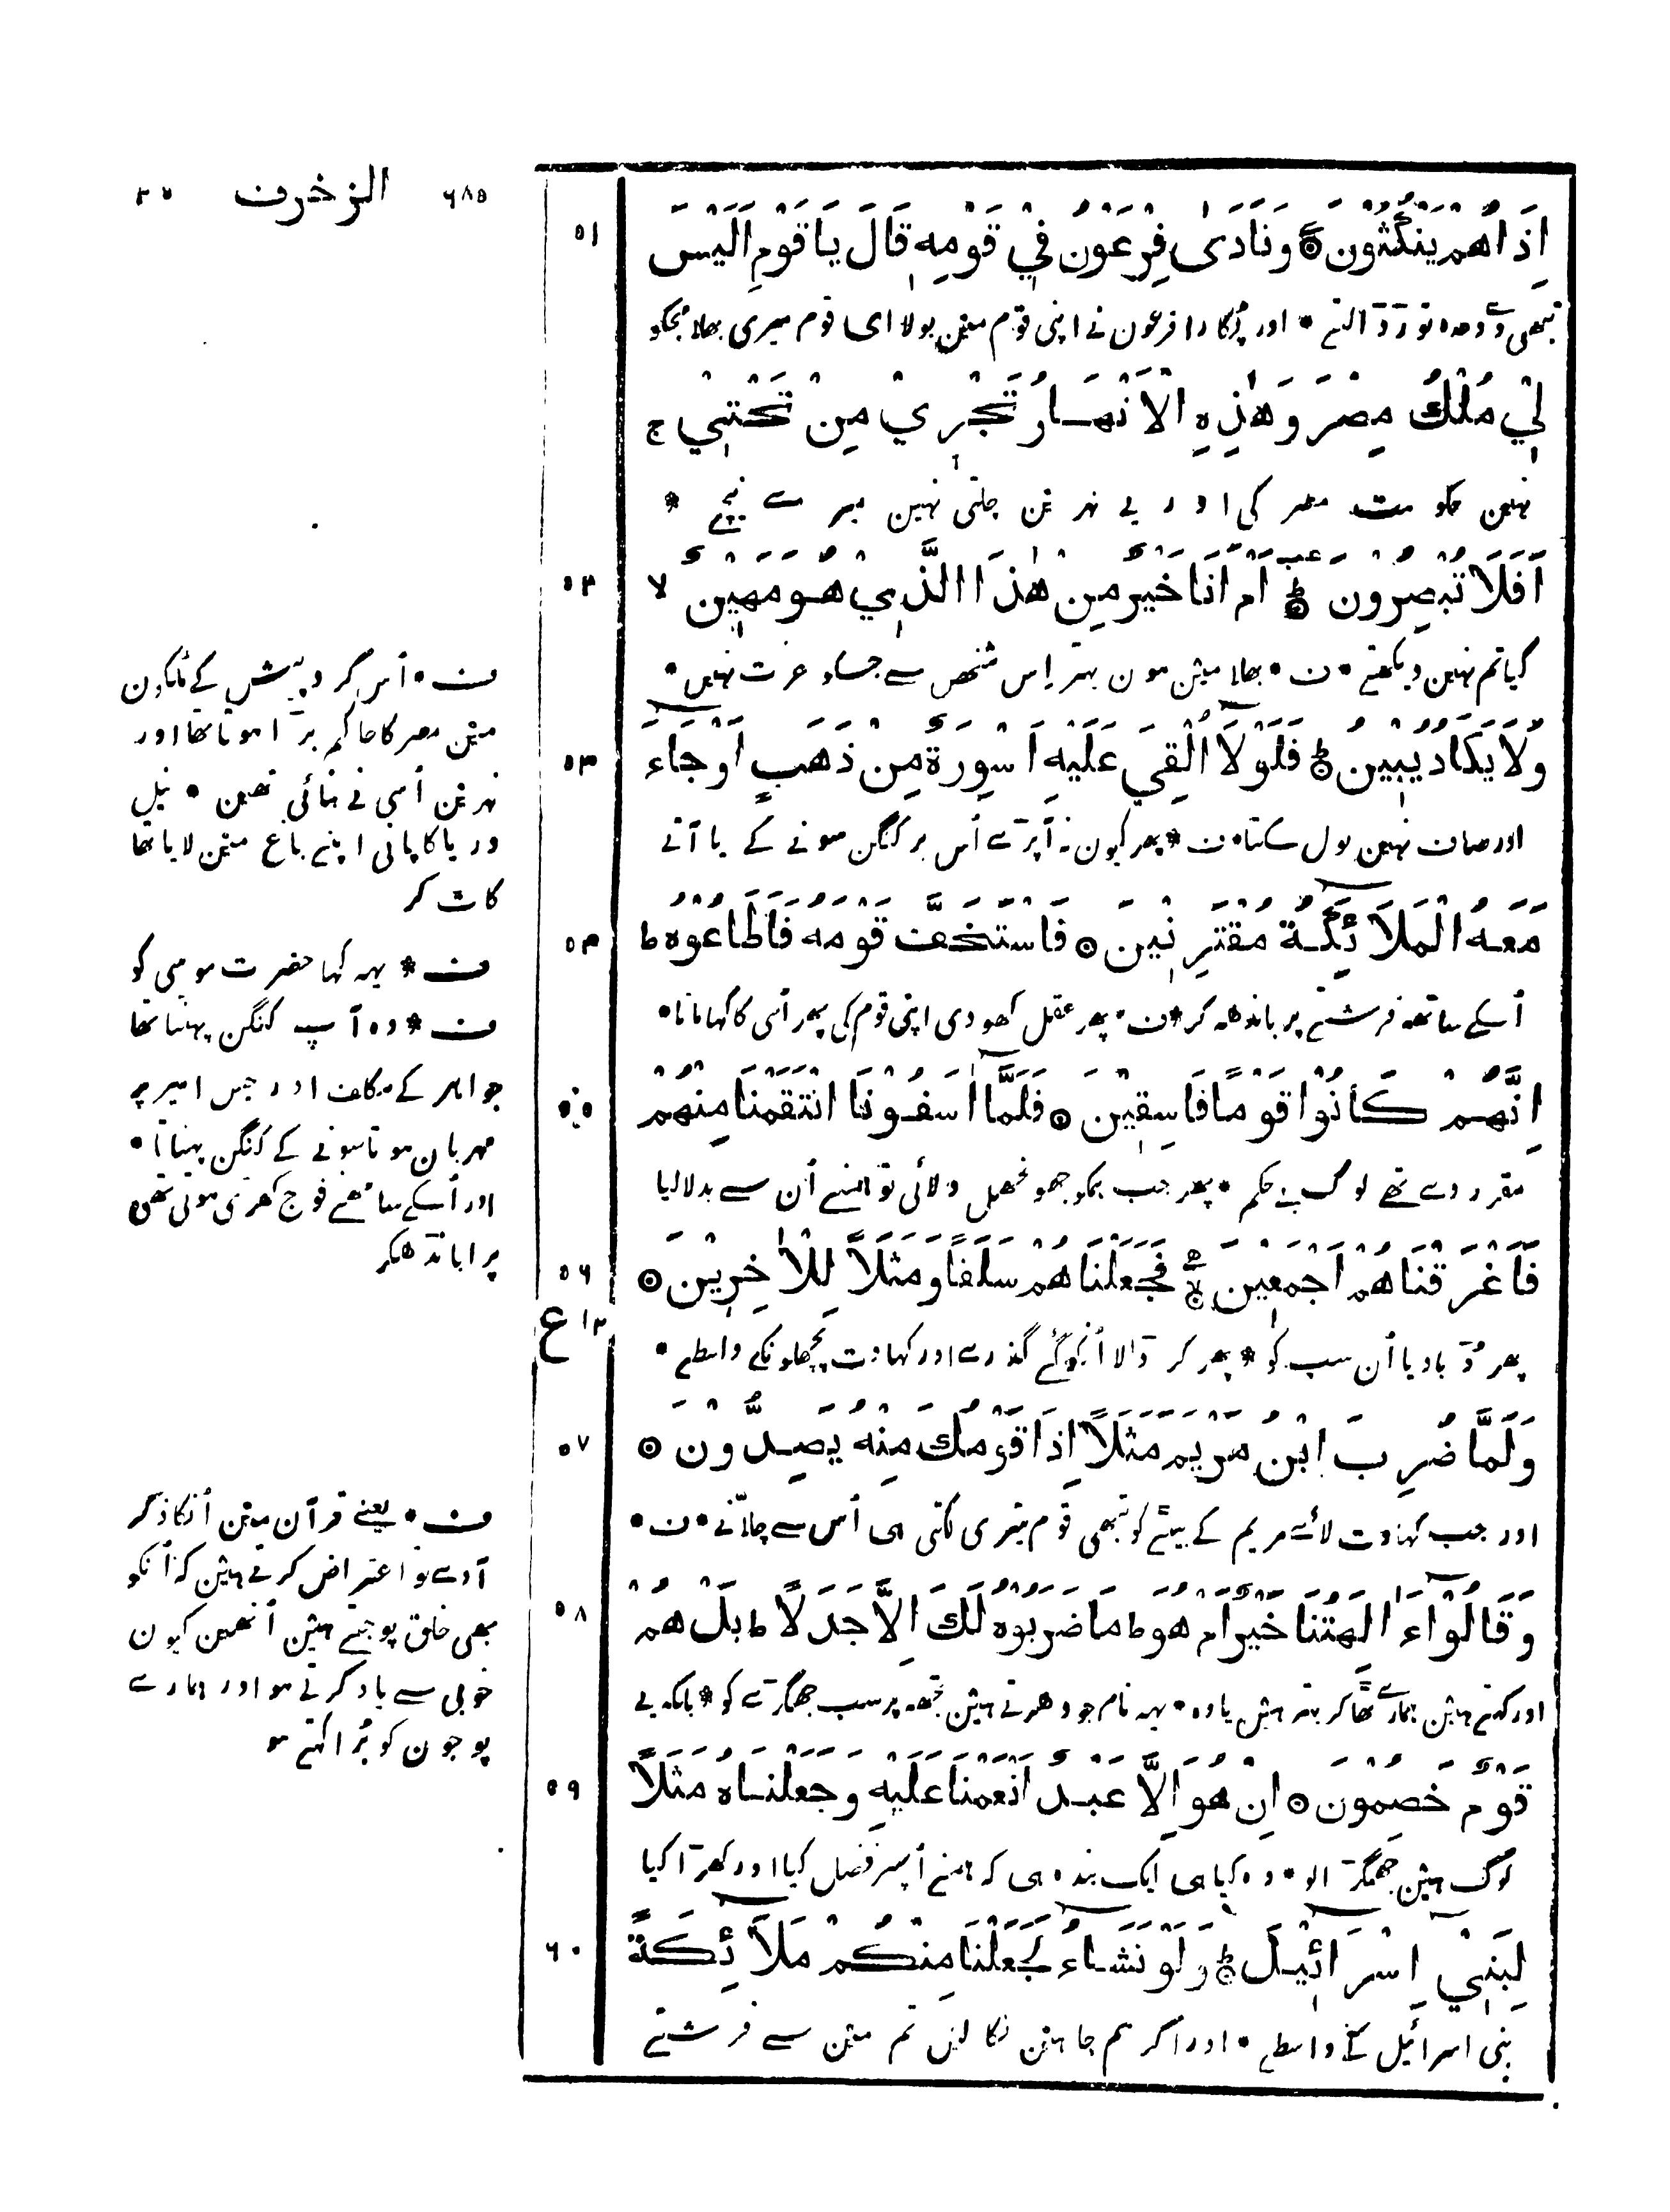 ٦٨٥ الزخرف ٢٥
اِذَا هُمْ يَنْكُثُوْنَ ۞ وَنَادَىٰ فِرْعَوْنُ فِيْ قَوْمِهٖ قَالَ يَا قَوْمِ اَلَيْسَ
٥١
تبھی وے وعدہ توڑ ڈالتے * اور پُکارا فرعون نے اپنی قوم مین بولا ای قوم میری بھلا مجکو
لِيْ مُلْكُ مِصْرَ وَهٰذِهِ الْاَنْهَارُ تَجْرِيْ مِنْ تَحْتِيْ ج
نہین حکومت مصر کی اور یے نہرین چلتی نہین میرے نیچے *
اَفَلَا تُبْصِرُوْنَ ط اَمْ اَنَا خَيْرٌ مِنْ هٰذَا الَّذِيْ هُوَ مَهِيْنٌ لا
٥٢
کیا تم نہین دیکھتے * ف * بھلا مین ہون بہتر اِس شخص سے جسکو عزت نہین *
وَلَا يَكَادُ يُبِيْنُ ط فَلَوْلَا اُلْقِيَ عَلَيْهِ اَسْوِرَةٌ مِنْ ذَهَبٍ اَوْ جَاءَ
٥٣
اور صاف نہین بول سکتا * ف * پھر کیون نہ آپڑے اُس پر کنگن سونے کے یا آتے
مَعَهُ الْمَلَائِكَةُ مُقْتَرِنِيْنَ ۞ فَاسْتَخَفَّ قَوْمَهٗ فَاَطَاعُوْهُ ط
٥٤
اُسکے ساتھ فرشتے پر باندھ کر * ف * پھر عقل کھودی اپنی قوم کی پھر اُسی کا کہا مانا *
اِنَّهُمْ كَانُوْا قَوْمًا فَاسِقِيْنَ ۞ فَلَمَّا اٰسَفُوْنَا انْتَقَمْنَا مِنْهُمْ
٥٥
مقرر وے تھے لوگ بے حکم * پھر جب ہمکو جھونجھل دلائی تو ہمنے اُن سے بدلا لیا
فَاَغْرَقْنَاهُمْ اَجْمَعِيْنَ لا فَجَعَلْنَاهُمْ سَلَفًا وَمَثَلًا لِلْاٰخِرِيْنَ ۞
٥٦
١٢ ع
پھر ڈبا دیا اُن سب کو * پھر کر ڈالا اُنکو گئے گذرے اور کہاوت پچھلونکے واسطے *
وَلَمَّا ضُرِبَ ابْنُ مَرْيَمَ مَثَلًا اِذَا قَوْمُكَ مِنْهُ يَصِدُّوْنَ ۞
٥٧
اور جب کہاوت لائے مریم کے بیٹے کو تبھی قوم تیری لگتی ہی اُس سے چلانے * ف *
وَقَالُوْا ءَاٰلِهَتُنَا خَيْرٌ اَمْ هُوَ ط مَا ضَرَبُوْهُ لَكَ اِلَّا جَدَلًا ط بَلْ هُمْ
٥٨
اور کہتے ہین ہمارے ٹھاکر بہتر ہین یا وہ * یہہ نام جو دھرتے ہین تجھہ پر سب جھگڑے کو * بلکہ یے
قَوْمٌ خَصِمُوْنَ ۞ اِنْ هُوَ اِلَّا عَبْدٌ اَنْعَمْنَا عَلَيْهِ وَجَعَلْنَاهُ مَثَلًا
٥٩
لوگ ہین جھگڑالو * وہ کیا ہی ایک بندہ ہی کہ ہمنے اُسپر فضل کیا اور کھڑا کیا
لِبَنِيْ اِسْرَائِيْلَ ط وَلَوْ نَشَاءُ لَجَعَلْنَا مِنْكُمْ مَلَائِكَةً
٦٠
بنی اسرائیل کے واسطے * اور اگر ہم چاہین نکالین تم مین سے فرشتے
ف * اُس گرد پیش کے ملکون
مین مصر کا حاکم بڑا ہوتا تھا اور
نہرین اُسی نے بنائی تھین * نیل
دریا کا پانی اپنے باغ مین لایا تھا
کاٹ کر
ف * یہہ کہا حضرت موسی کو
ف * وہ آپ کنگن پہنتا تھا
جواہر کے مکلف اور جس امیر پر
مہربان ہوتا سونے کے کنگن پہناتا *
اور اُسکے سامھنے فوج کھڑی ہوتی تھی
پرا باندھکر
ف * یعنے قرآن مین اُنکا ذکر
آوے تو اعتراض کرتے ہین کہ اُنکو
بھی خلق پوجتے ہین اُنھین کیون
خوبی سے یاد کرتے ہو اور ہمارے
پوجون کو بُرا کہتے ہو